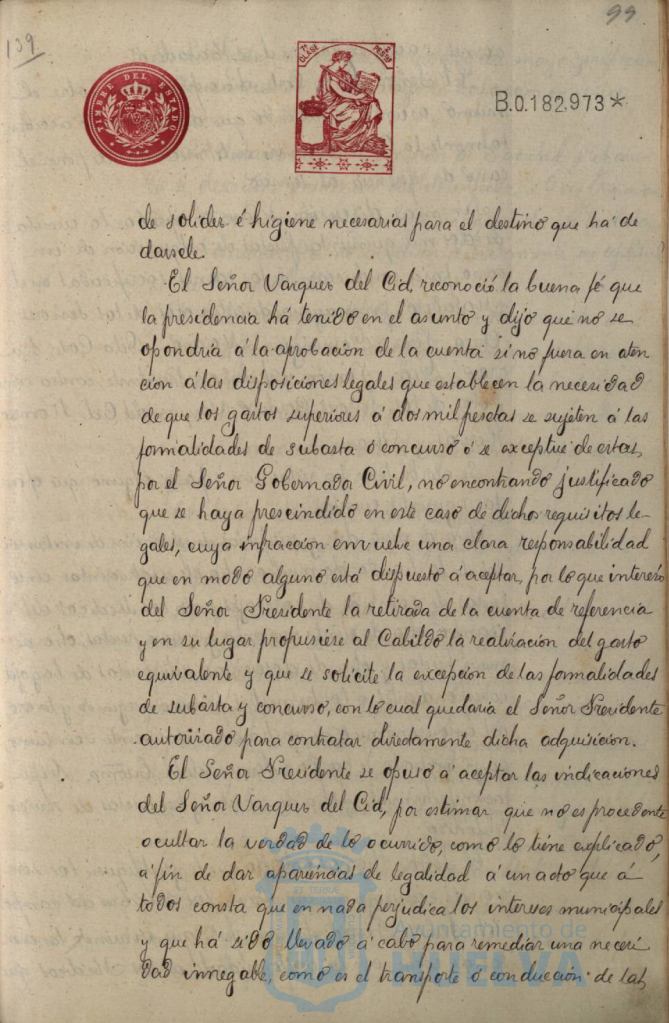 139
99
TIMBRE DEL ESTADO
7ª CLASE
2 PESETAS
B.0.182,973*
de solidez é higiene necesarias para el destino que há de
darsele.
El Señor Vazquez del Cid, reconoció la buena fé que
la presidencia há tenido en el asunto y dijo que no se
opondria á la aprobacion de la cuenta si no fuera en aten
cion á las disposiciones legales que establecen la necesidad
de que los gastos superiores á dos mil pesetas se sujeten á las
formalidades de subasta ó concurso ó se exceptue de estas,
por el Señor Gobernador Civil, no encontrando justificado
que se haya prescindido en este caso de dichos requisitos le-
gales, cuya infraccion envuelve una clara responsabilidad
que en modo alguno está dispuesto á aceptar, por lo que interesó
del Señor Presidente la retirada de la cuenta de referencia
y en su lugar propusiese al Cabildo la realizacion del gasto
equivalente y que se solicite la excepcion de las formalidades
de subasta y concurso, con lo cual quedaria el Señor Presidente
autorizado para contratar directamente dicha adquisicion.
El Señor Presidente se opuso á aceptar las indicaciones
del Señor Vazquez del Cid, por estimar que no es procedente
ocultar la verdad de lo ocurrido, como lo tiene explicado,
á fin de dar apariencias de legalidad á un acto que á
todos consta que en nada perjudica los intereses municipales
y que há sido llevado á cabo para remediar una neceri
dad innegable, como es el transporte ó conduccion de las
Ayuntamiento de
HUELVA